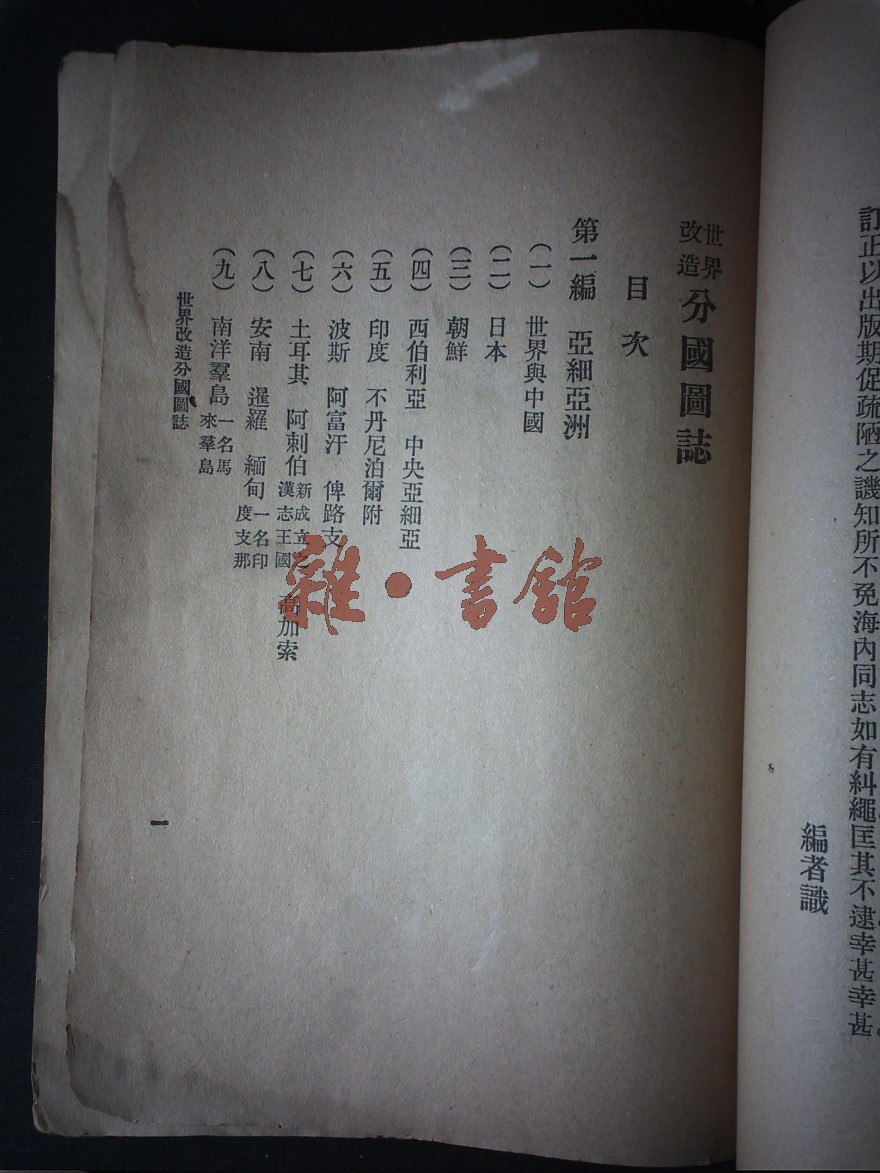 訂正以出版期促疏陋之譏知所不免海內同志如有糾繩匡其不逮幸甚幸甚。
編者識
世界改造分國圖誌
目次
第一編　亞細亞洲
（一）　世界與中國
（二）　日本
（三）　朝鮮
（四）　西伯利亞　中央亞細亞
（五）　印度　不丹尼泊爾附
（六）　波斯　阿富汗　俾路支
（七）　土耳其　阿剌伯新成立之漢志王國　高加索
（八）　安南　暹羅　緬甸一名印度支那
（九）　南洋羣島一名馬來羣島
世界改造分國圖誌
一
雜·書館